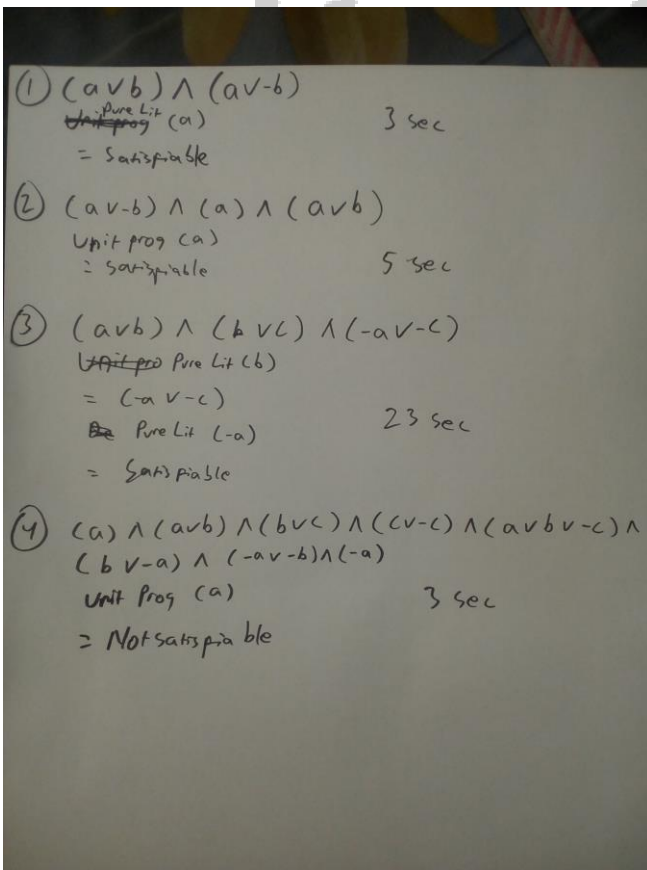 ① (a∨b) ∧ (a∨-b)
Pure Lit
Unit prog (a) 3 sec
= Satisfiable
② (a∨-b) ∧ (a) ∧ (a∨b)
Unit prog (a)
= Satisfiable 5 sec
③ (a∨b) ∧ (b∨c) ∧ (-a∨-c)
Unit pro Pure Lit (b)
= (-a ∨-c)
Pure Lit (-a) 23 sec
= Satisfiable
④ (a) ∧ (a∨b) ∧ (b∨c) ∧ (c∨-c) ∧ (a∨b∨-c) ∧
(b ∨-a) ∧ (-a∨-b) ∧ (-a)
Unit Prog (a) 3 sec
= Not satisfiable